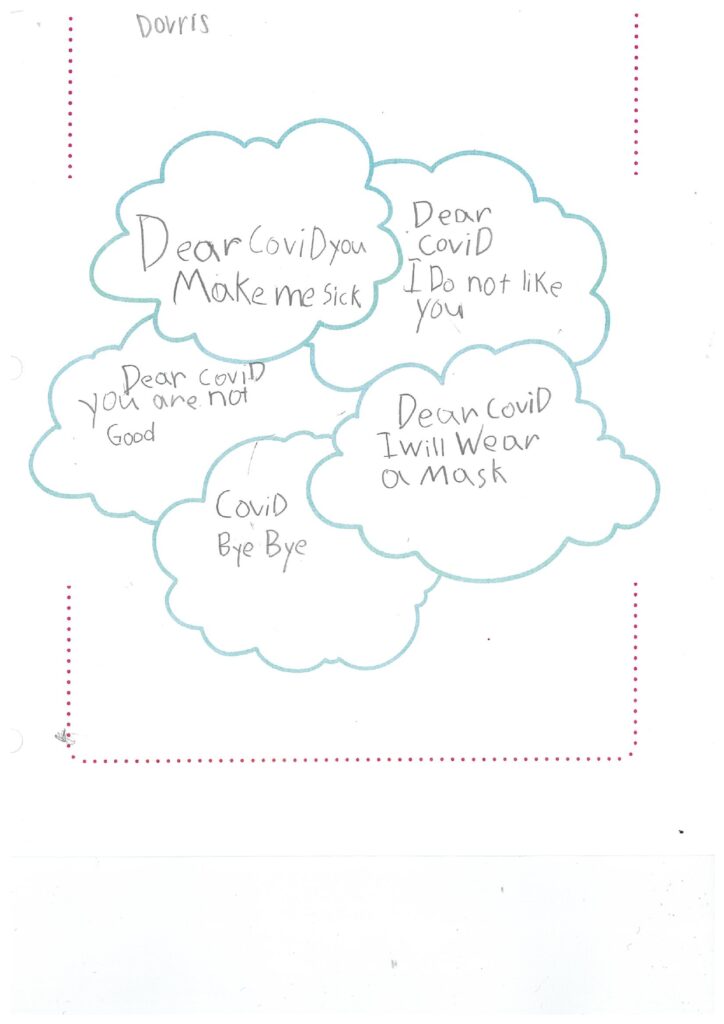 Dovris
Dear CoviD you
Make me sick
Dear
CoviD
I Do not like
you
Dear CoviD
you are not
Good
Dear CoviD
I will Wear
a Mask
CoviD
Bye Bye